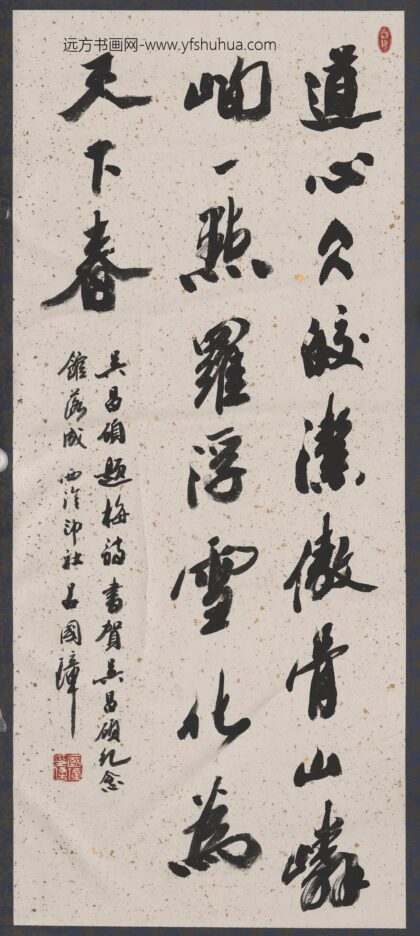 远方书画网-www.yfshuhua.com
道心久皎潔傲骨山嶙
峋一點羅浮雪化為
天下春
吳昌碩題梅詩書賀吳昌碩紀念
館落成西泠印社呂國璋